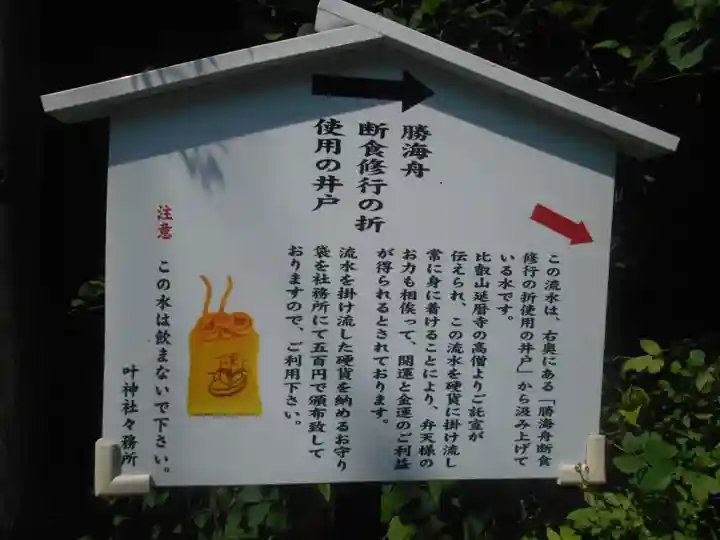 勝海舟
断食修行の折
使用の井戸
この流水は、右奥にある「勝海舟断食
修行の折使用の井戸」から汲み上げて
いる水です。
比叡山延暦寺の高僧よりご託宣が
伝えられ、この流水を硬貨に掛け流し
常に身に着けることにより、弁天様の
お力も相俟って、開運と金運のご利益
が得られるとされております。
流水を掛け流した硬貨を納めるお守り
袋を社務所にて五百円で頒布致して
おりますので、ご利用下さい。
注意 この水は飲まないで下さい。
叶神社々務所